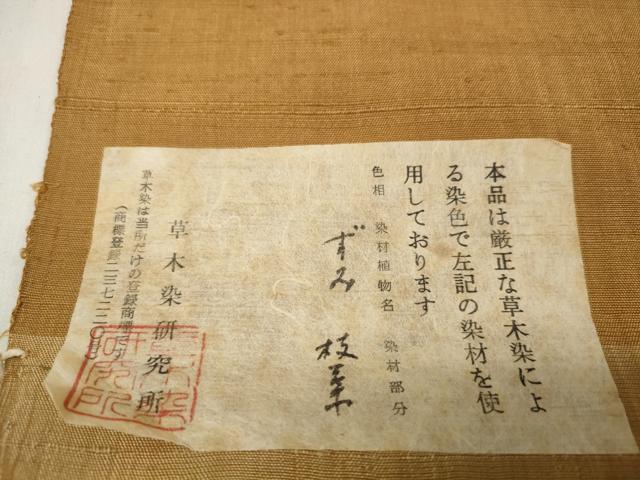 本品は厳正な草木染によ
る染色で左記の染材を使
用しております
色相 染材植物名 染材部分
ずみ 枝葉
草木染研究所
草木染は当所だけの登録商標です
(商標登録二三七二二〇号)
草木染研究所